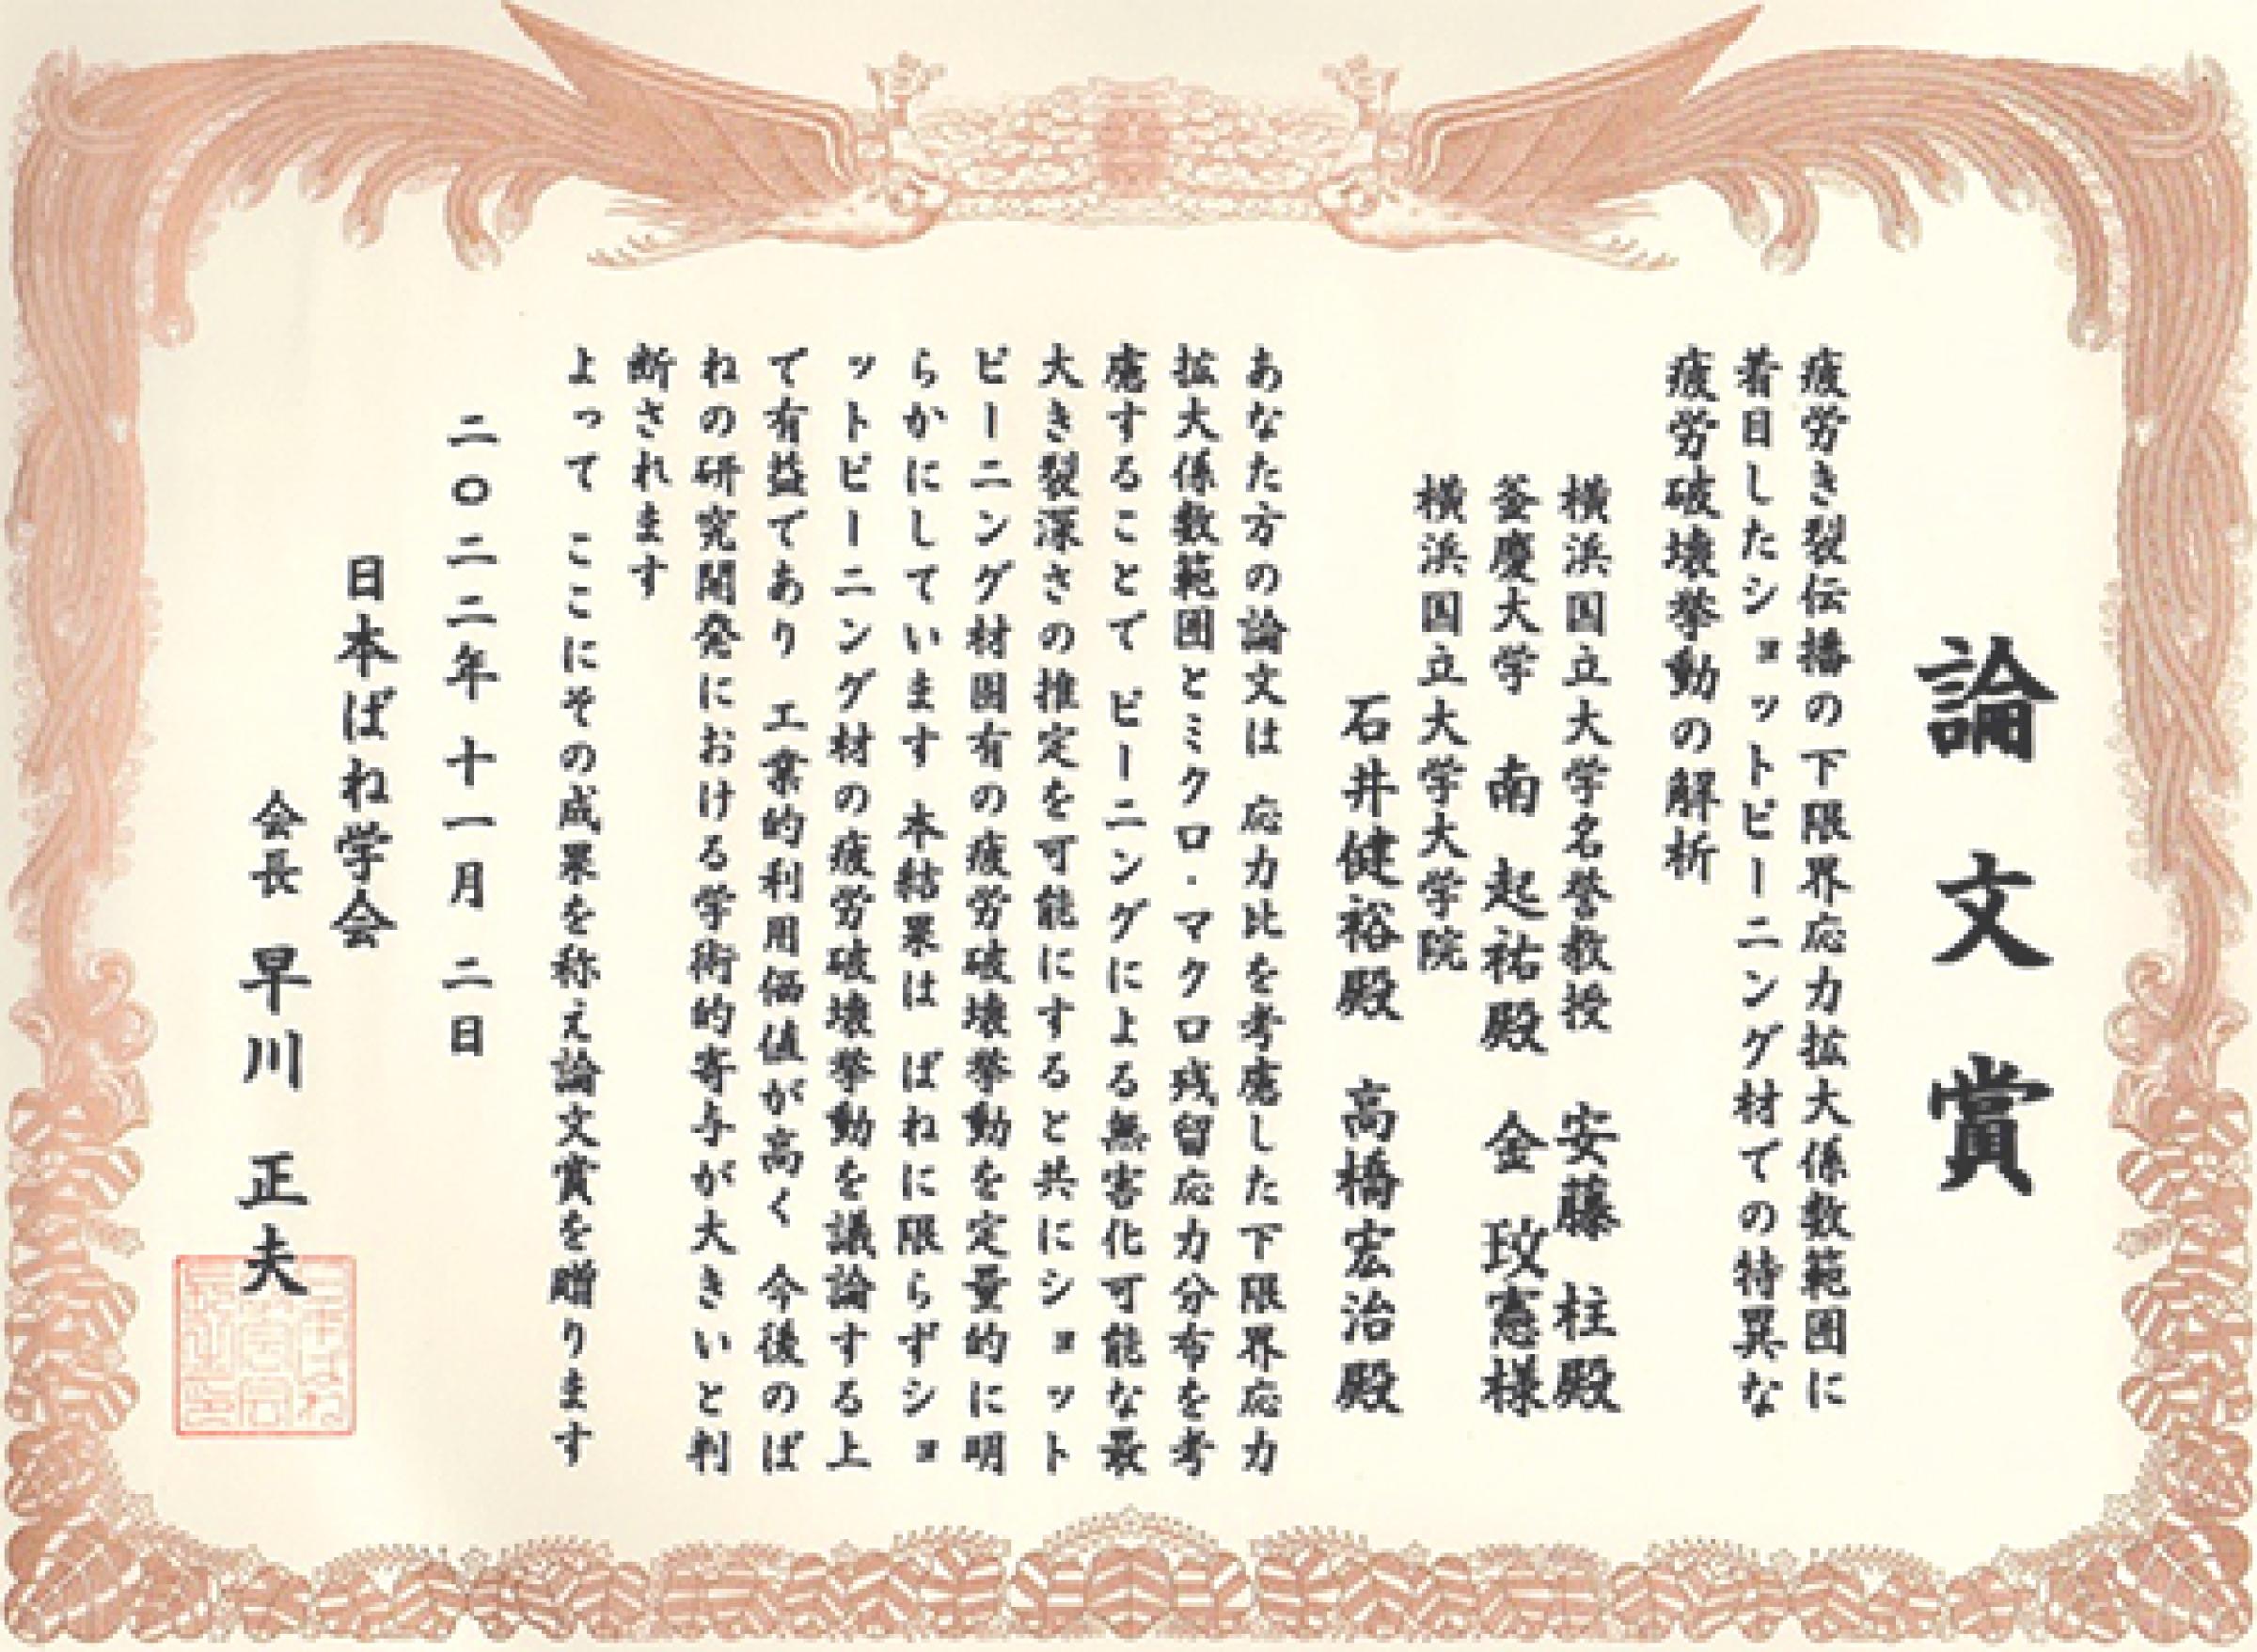 論文賞
疲労き裂伝播の下限界応力拡大係数範囲に
着目したショットピーニング材での特異な
疲労破壊挙動の解析
横浜国立大学名誉教授 安藤 柱殿
釜慶大学 南 起祐殿 金 玟憲様
横浜国立大学大学院
石井健裕殿 高橋宏治殿
あなた方の論文は 応力比を考慮した下限界応力
拡大係数範囲とミクロ・マクロ残留応力分布を考
慮することで ピーニングによる無害化可能な最
大き裂深さの推定を可能にすると共にショット
ピーニング材固有の疲労破壊挙動を定量的に明
らかにしています 本結果は ばねに限らずショ
ットピーニング材の疲労破壊挙動を議論する上
で有益であり 工業的利用価値が高く 今後のば
ねの研究開発における学術的寄与が大きいと判
断されます
よって ここにその成果を称え論文賞を贈ります
二〇二二年 十一月 二日
日本ばね学会
会長 早川 正夫